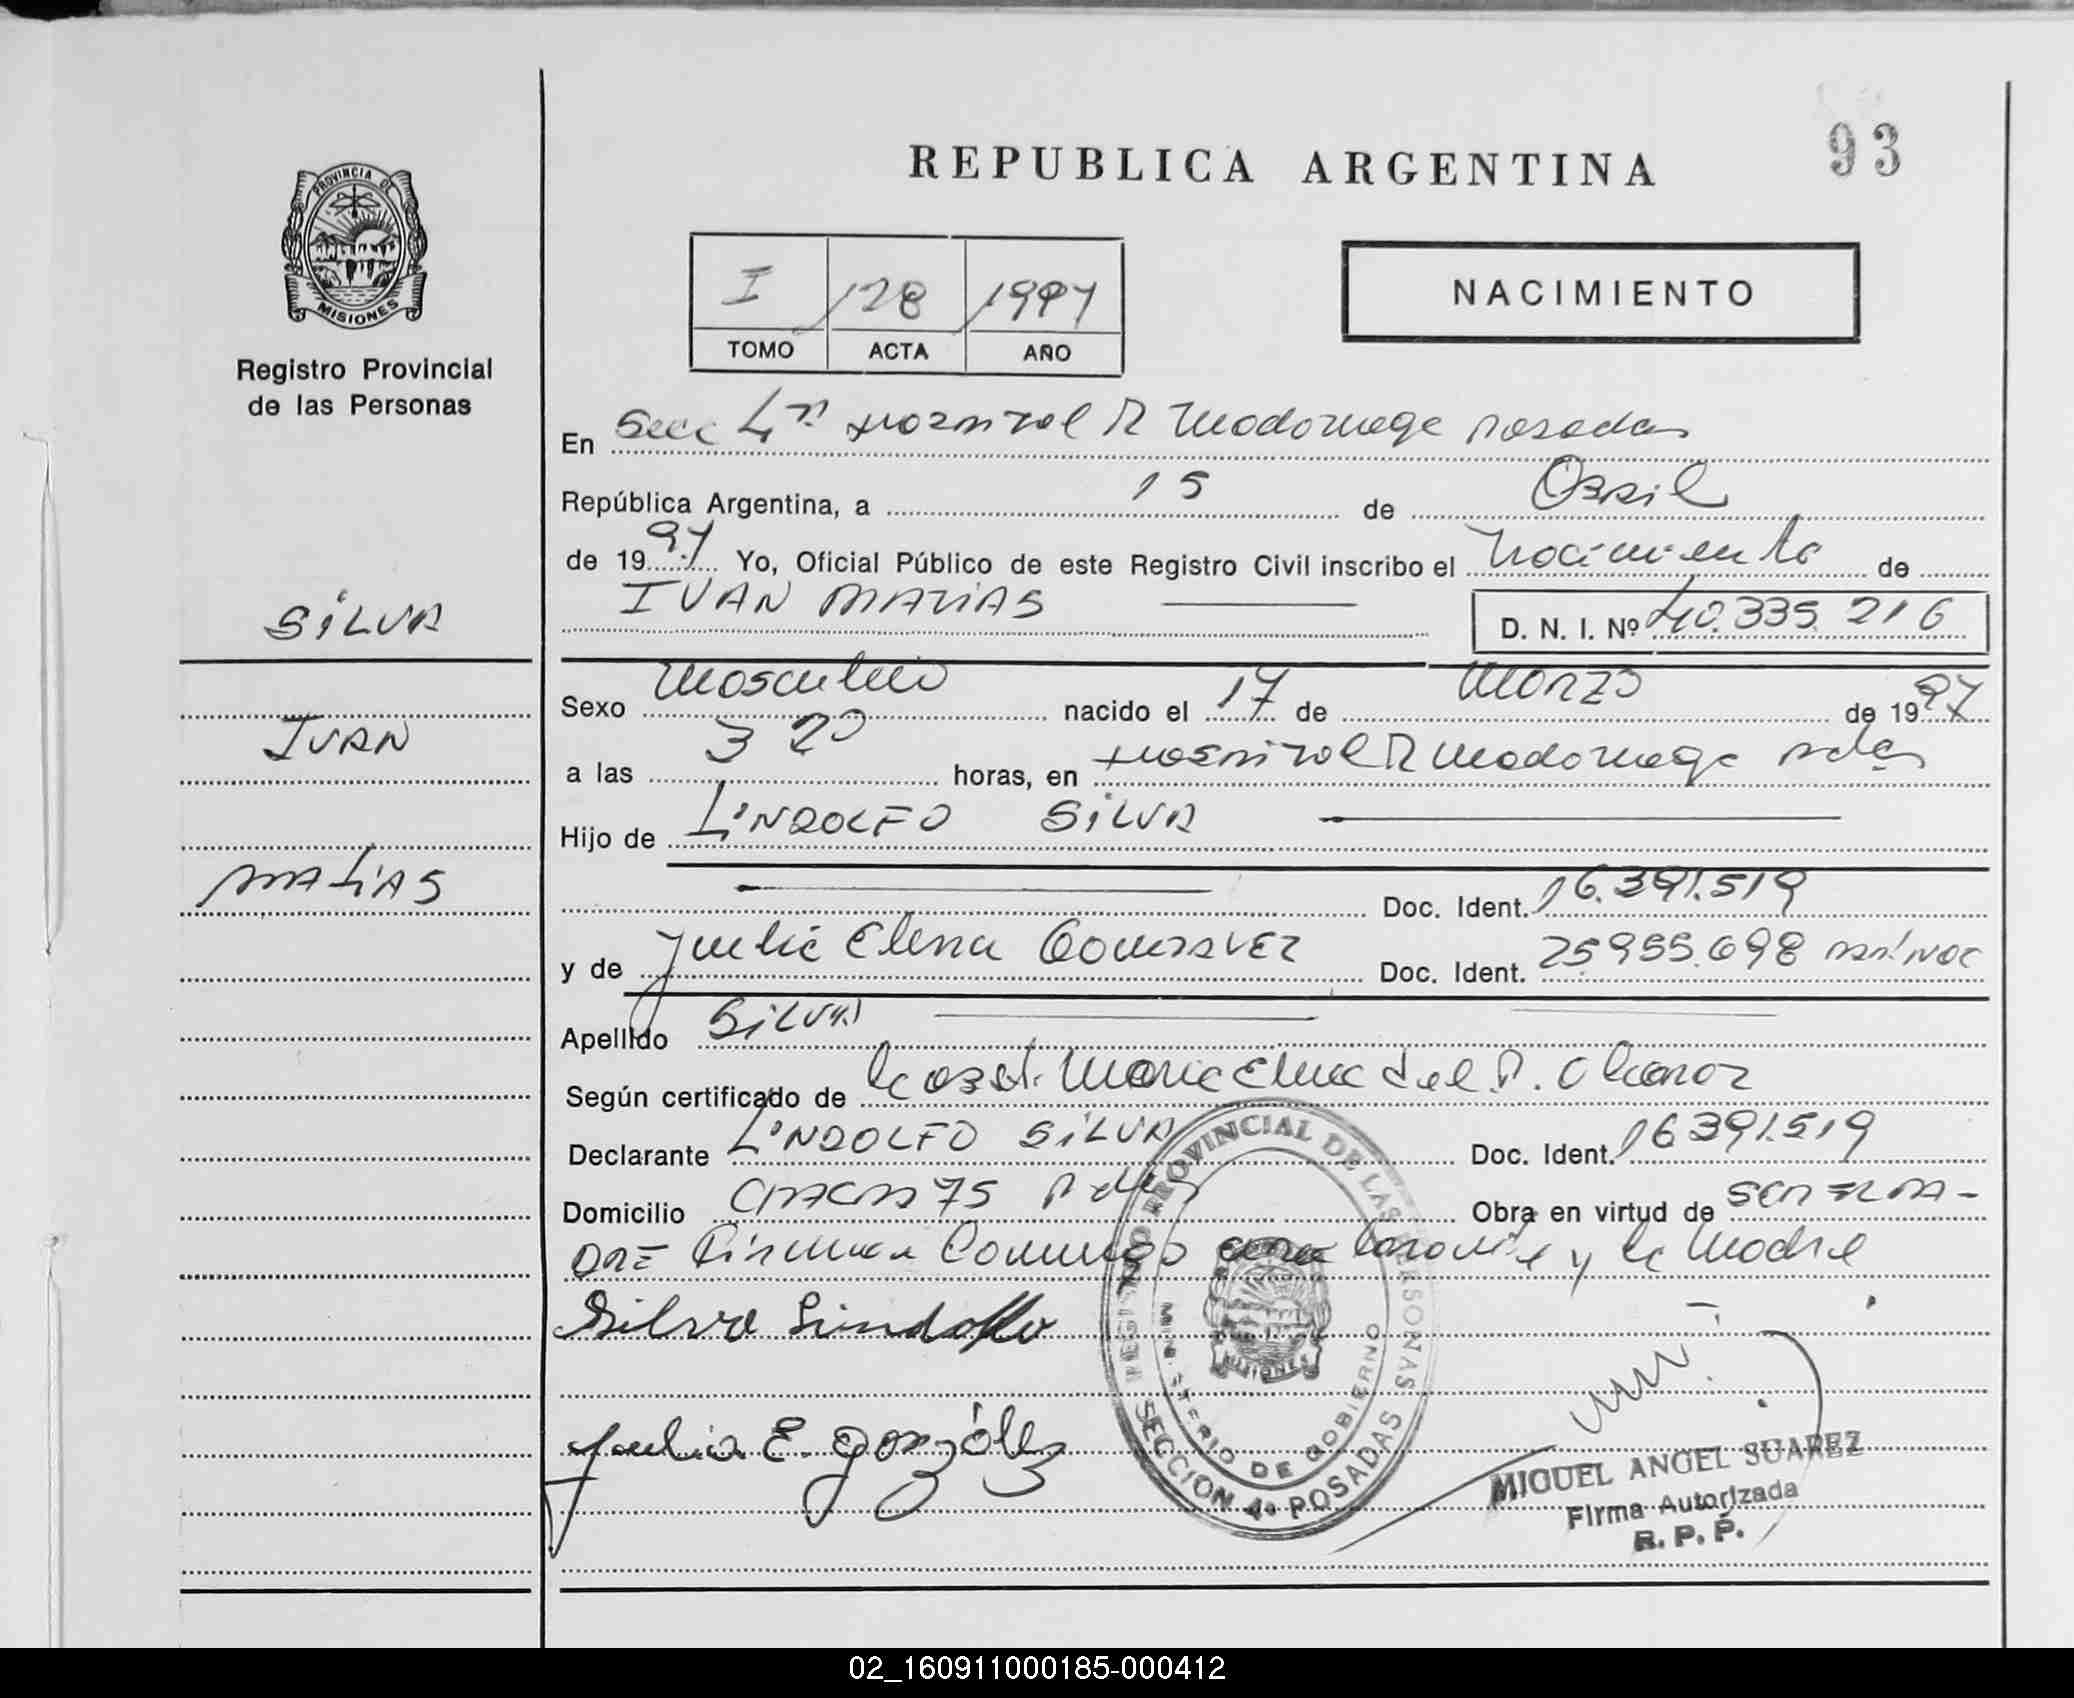 93
REPUBLICA ARGENTINA
PROVINCIA DE
MISIONES
Registro Provincial
de las Personas
I 128 1997
TOMO ACTA AÑO
NACIMIENTO
En Secc 4ª Hospital R Madariaga Posadas
República Argentina, a 15 de Abril
de 1997 Yo, Oficial Público de este Registro Civil inscribo el Nacimiento de
IVAN MATIAS
D. N. I. Nº 40.335.216
SILVA
IVAN
MATIAS
Sexo Masculino nacido el 17 de Marzo de 1997
a las 3 20 horas, en Hospital R Madariaga Pdas
Hijo de LINDOLFO SILVA
Doc. Ident. 16.391.519
y de Julia Elena Gonzalez Doc. Ident. 25.955.698
Apellido SILVA
Según certificado de Maria Elena del
Declarante LINDOLFO SILVA Doc. Ident. 16.391.519
Domicilio 75 Pdas Obra en virtud de SER EL PA-
DRE Firman Conmigo y la Madre
Silva Lindolfo
Julia E. González
REGISTRO PROVINCIAL DE LAS PERSONAS
MINISTERIO DE GOBIERNO
MISIONES
SECCION 4ª POSADAS
MIGUEL ANGEL SUAREZ
Firma Autorizada
R. P. P.
02_160911000185-000412